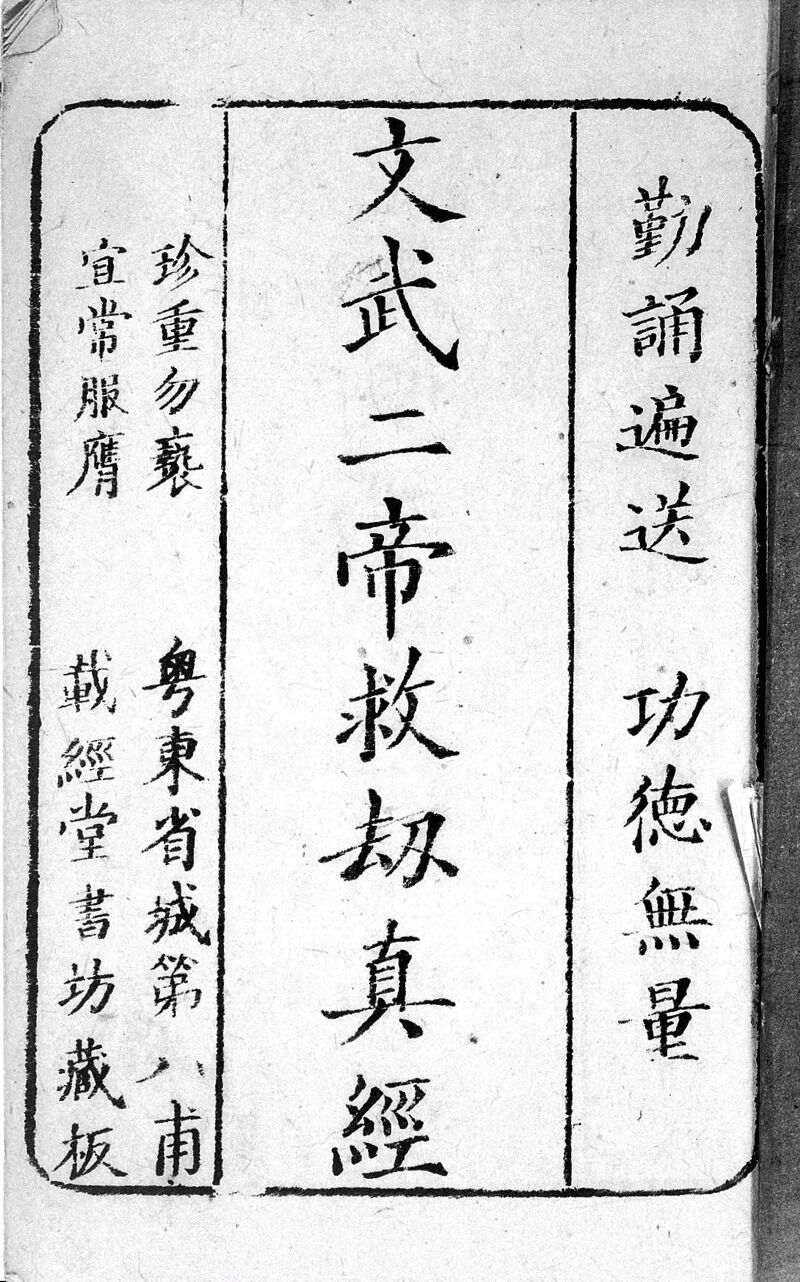 勤誦遍送 功德無量
文武二帝救刼真經
珍重勿褻 粤東省城第八甫
宜常服膺 載經堂書坊藏板